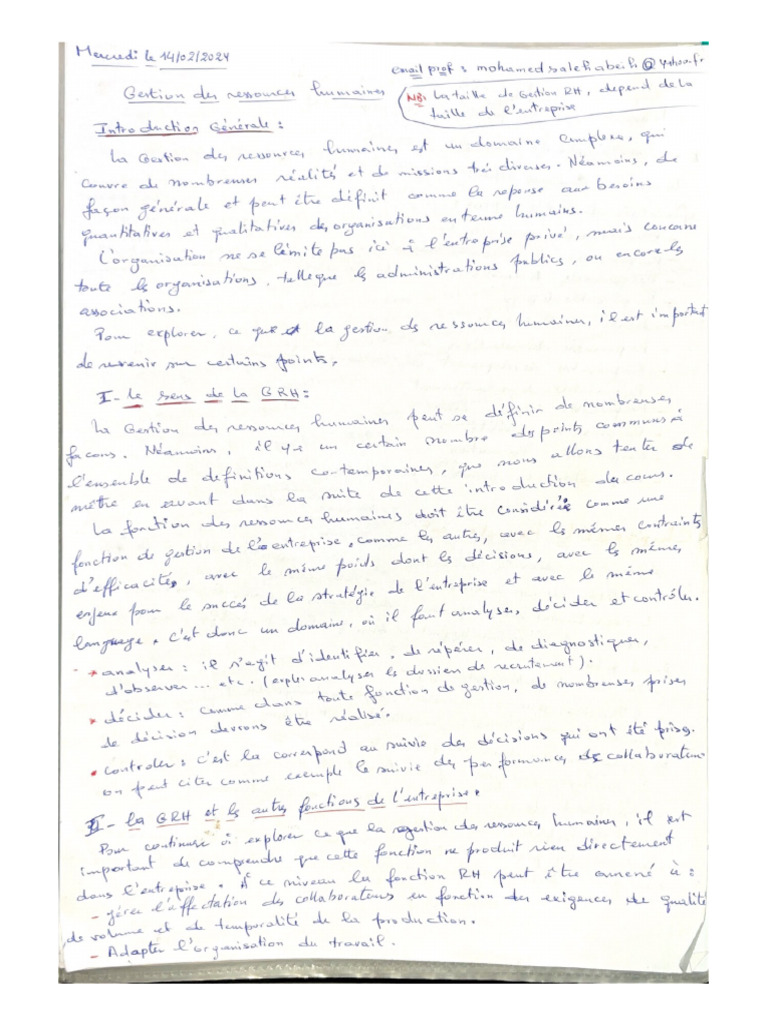 Mercredi le 14/02/2024
email prof : mohamedsalehabeih@yahoo.fr
Gestion des ressources humaines
NB: La taille de Gestion RH, depend de la
taille de l'entreprise
Introduction Générale :
La Gestion des ressources humaines est un domaine complexe, qui
couvre de nombreuses réalités et de missions très diverses. Néamoins, de
façon générale et peut être définit comme la reponse aux besoins
quantitatives et qualitatives des organisations en terme humains.
L'organisation ne se limite pas ici à l'entreprise privé, mais concerne
toute les organisations, telle que les administrations publics, ou encore les
associations.
Pour explorer, ce que est la gestion des ressources humaines, il est important
de revenir sur certains points.
I- le sens de la GRH :
La Gestion des ressources humaines peut se définir de nombreuses
façons. Néamoins, il y a un certain nombre des points communs à
l'ensemble de definitions contemporaines, que nous allons tenter de
mètre en avant dans la suite de cette introduction du cours.
La fonction des ressources humaines doit être considérée comme une
fonction de gestion de l'entreprise, comme les autres, avec les mêmes contraints
d'efficacités, avec le même poids dont les décisions, avec les mêmes
enjeux pour le succès de la stratégie de l'entreprise et avec le même
language. C'est donc un domaine, où il faut analyser, décider et contrôler.
* analyser : il s'agit d'identifier, de répérer, de diagnostiquer,
d'observer ... etc. (exple: analyser les dossiers de recrutement).
* décider : comme dans toute fonction de gestion, de nombreuses prises
de décision devrons être réalisé.
* controler : c'est la correspond au suivie des décisions qui ont été prise.
on peut citer comme exemple le suivie des performances des collaborateurs
II- la GRH et les autres fonctions de l'entreprise.
Pour continuer à explorer ce que la gestion des ressources humaines, il est
important de comprendre que cette fonction ne produit rien directement
dans l'entreprise. À ce niveau la fonction RH peut être amené à :
- gérer l'affectation des collaborateurs en fonction des exigences de qualité
de volume et de temporalité de la production.
- Adapter l'organisation du travail.